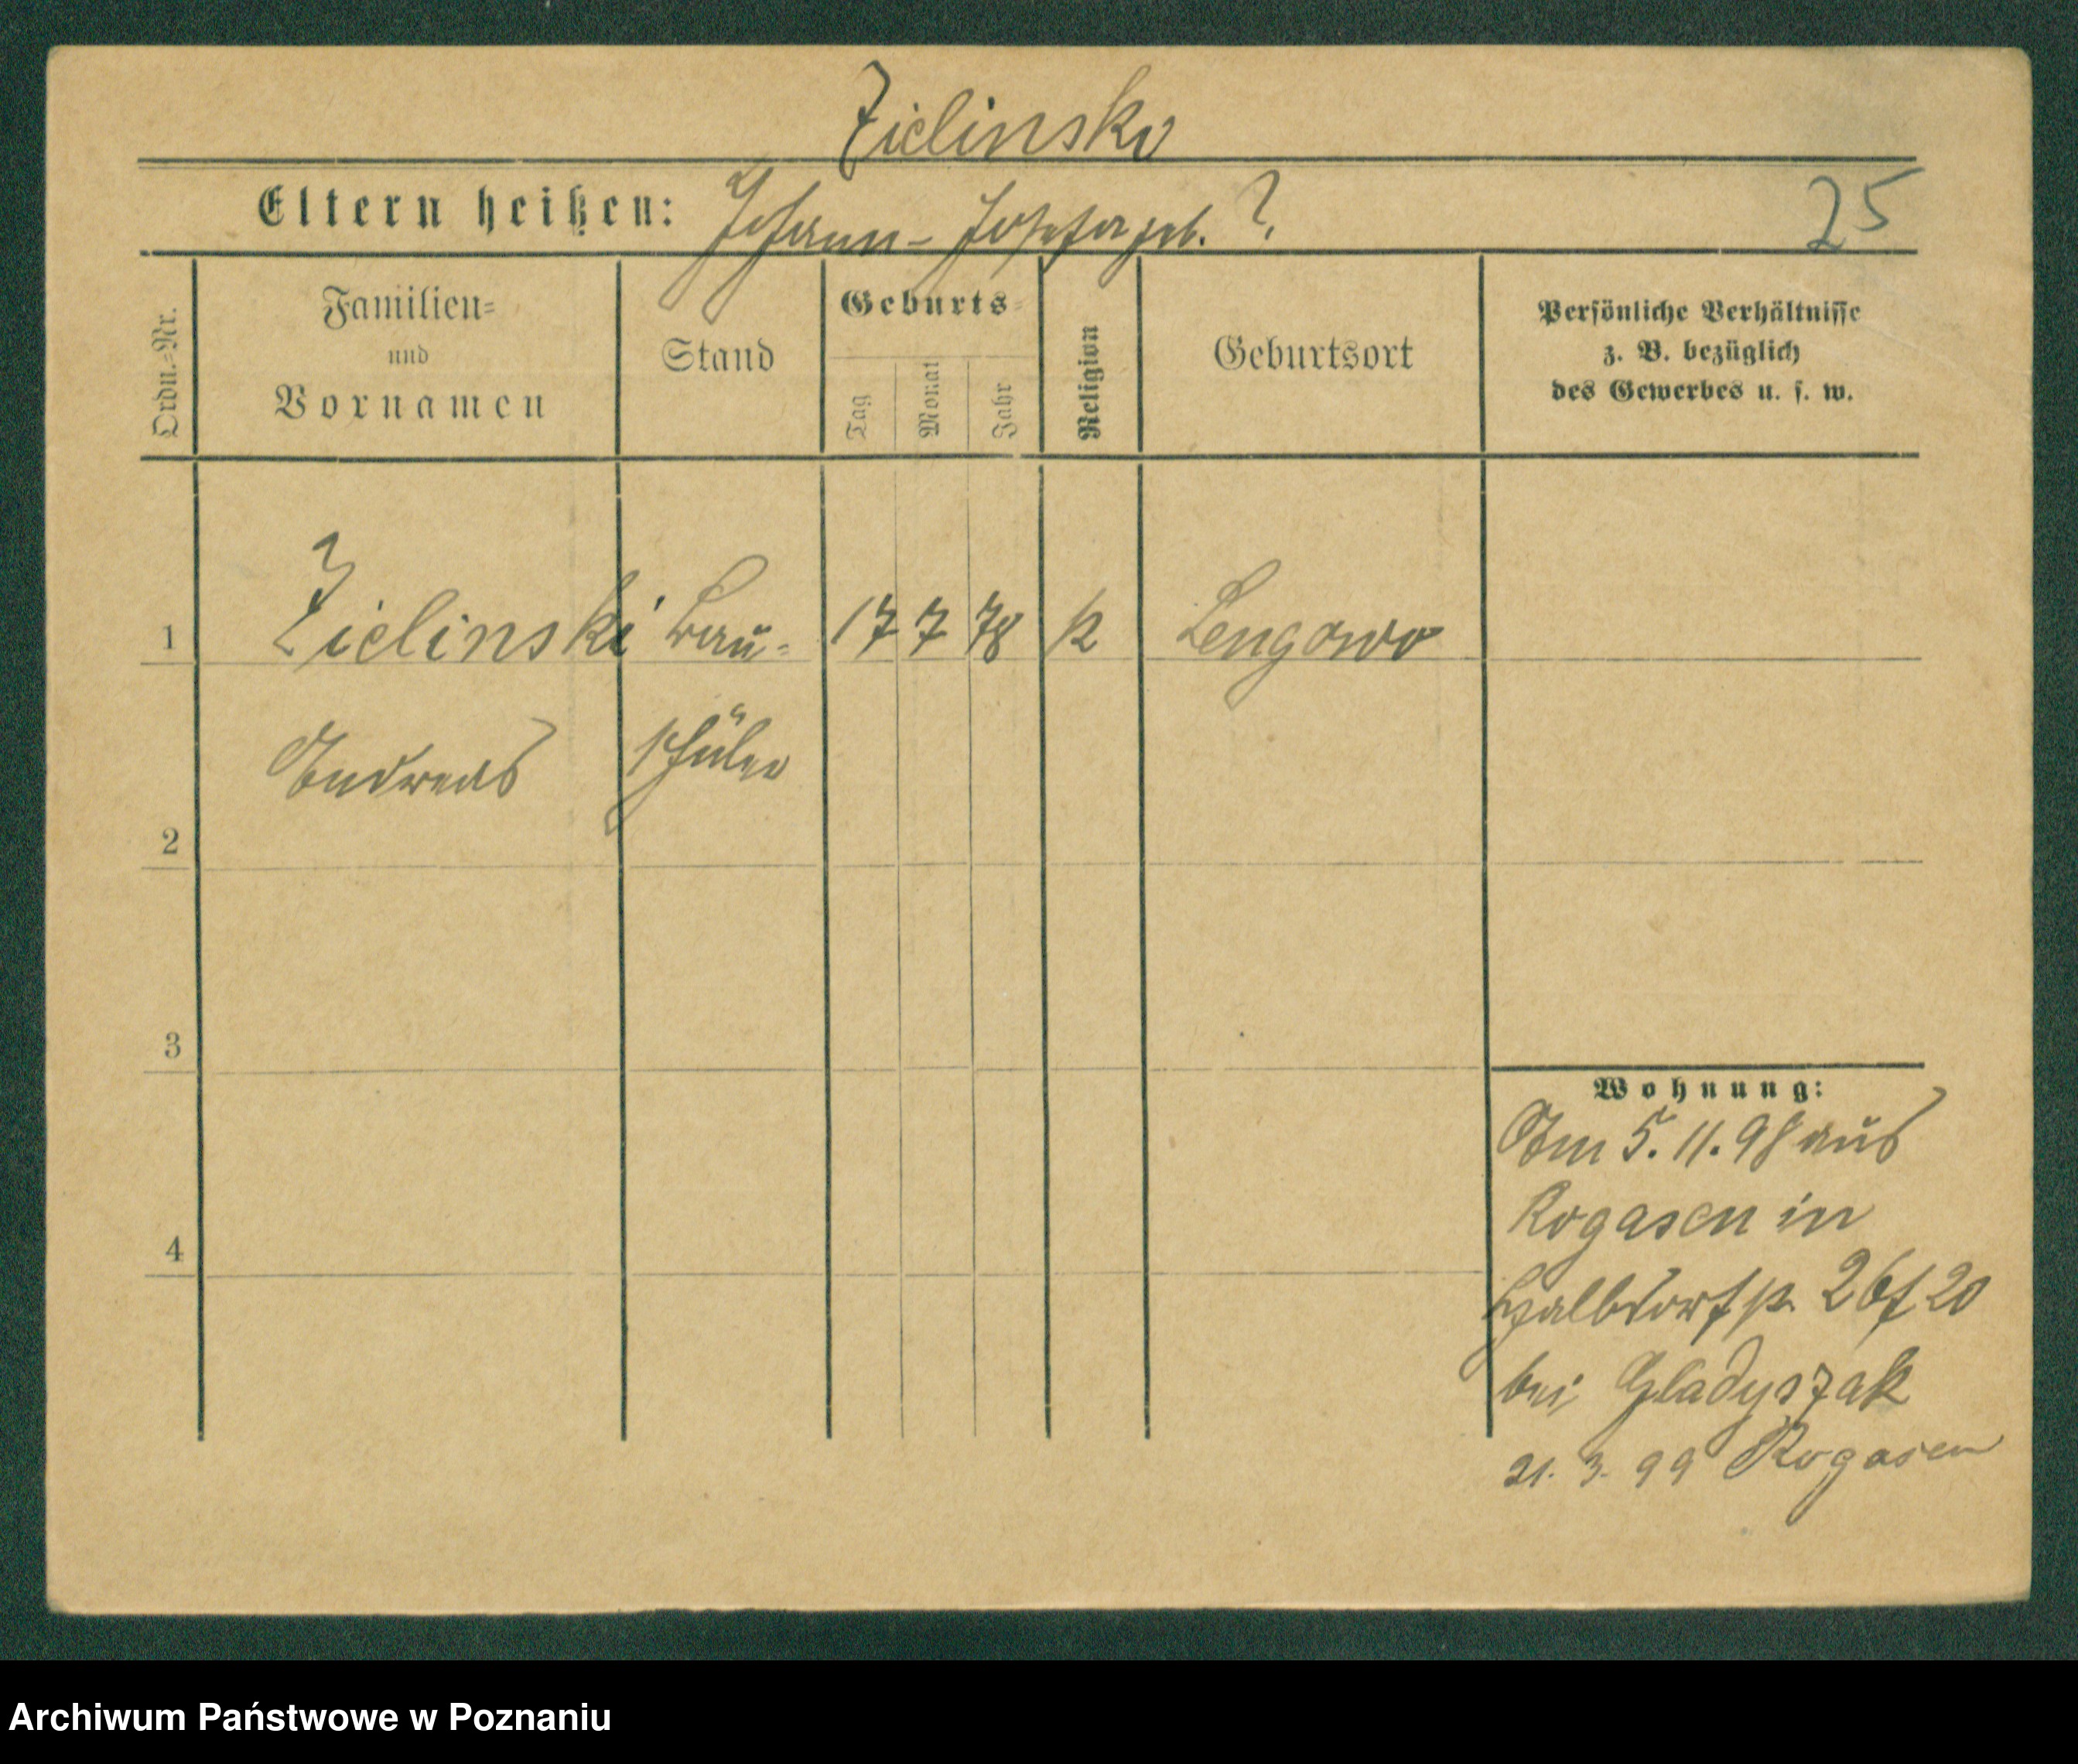 Zielinski
Eltern heißen: Johann - Josefa geb. ?
25
Ordn.-Nr.
Familien=
und
Vornamen
Stand
Geburts=
Tag
Monat
Jahr
Religion
Geburtsort
Persönliche Verhältnisse
z. B. bezüglich
des Gewerbes u. s. w.
1 Zielinski Bau- 17 7 78 k Lengowo
Andreas schüler
2
3
4
Wohnung:
Am 5. 11. 98 aus
Rogasen in
Halbdorfstr. 26 20
bei Gladyszak
21. 3. 99 Rogasen
Archiwum Państwowe w Poznaniu